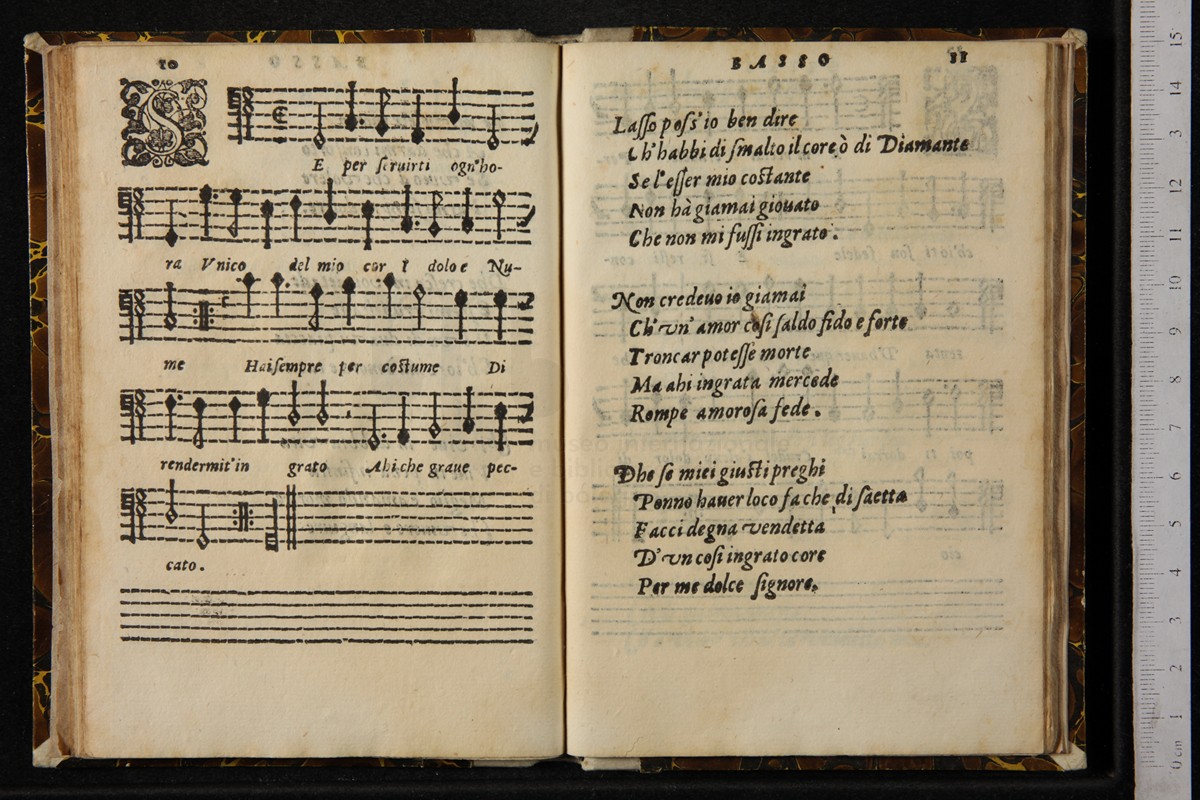 10
SE per seruirti ogn'ho-
ra Vnico del mio cor I dolo e Nu-
me Hai sempre per costume Di
rendermit'in grato Ahi che graue pec-
cato.
BASSO
11
Lasso poss'io ben dire
Ch'habbi di smalto il core ò di Diamante
Se l'esser mio costante
Non hà giamai giouato
Che non mi fussi ingrato.
Non credeuo io giamai
Ch'vn'amor cosi saldo fido e forte
Troncar potesse morte
Ma ahi ingrata mercede
Rompe amorosa fede.
Dhe se miei giusti preghi
Ponno hauer loco fa che di saetta
Facci degna vendetta
D'vn cosi ingrato core
Per me dolce signore.
15
14
13
12
11
10
9
8
7
6
5
4
3
2
1
0 cm